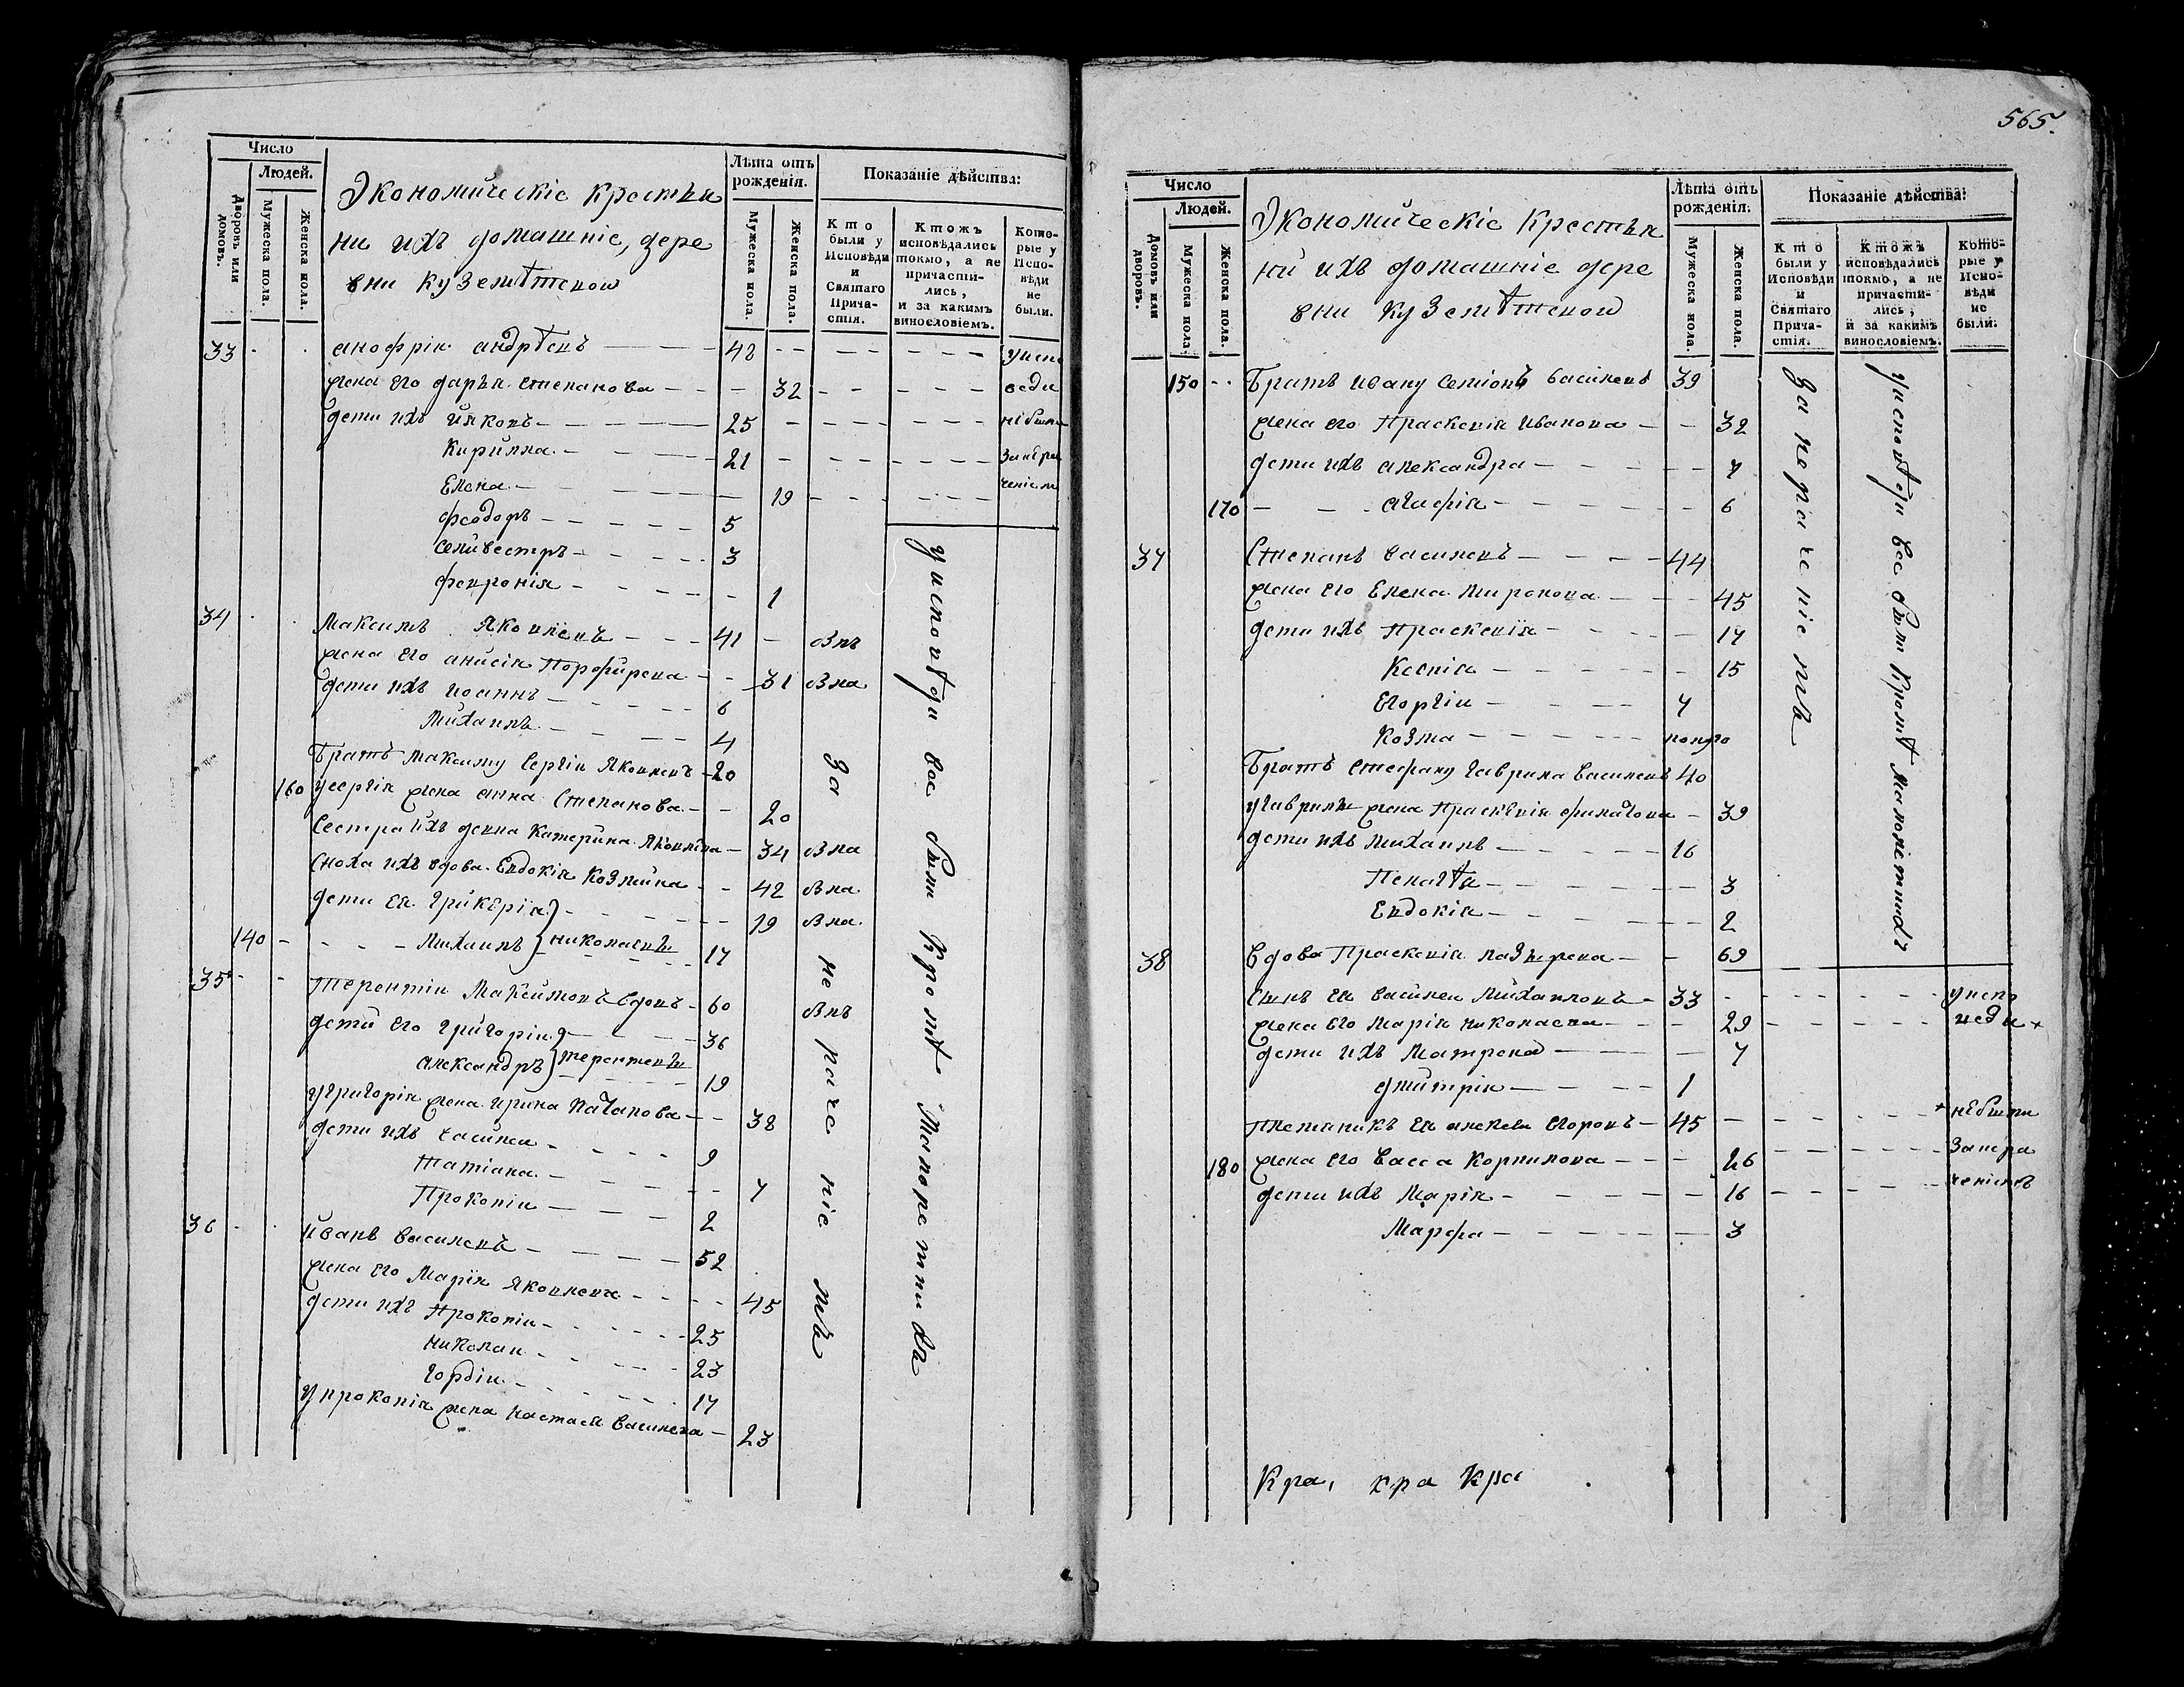 Число
Людей.
Дворовъ или домовъ.
Мужеска пола.
Женска пола.
Экономическіе крестья
ни ихъ домашніе, дере
вни Кузелѣтевой
Лѣта отъ рожденія.
Мужеска пола.
Женска пола.
Показаніе дѣйства:
Кто были у Исповѣди и Святаго Причастія.
Ктожъ исповѣдались токмо, а не причастились, и за какимъ винословіемъ.
Которые у Исповѣди не были.
33 Анофрій Андрѣевъ 48 у испо
жена его Дарья Степанова 32 веди
дети ихъ Иаковъ 25 не были
Кирилла 21 за нера
Елена 19 ченіем
Феодоръ 5
Селивестръ 3
Февронія 1
34 Максимъ Яковлевъ 41 Впъ
жена его Анисія Порфирева 31 Впа
дети ихъ Иоаннъ 6
Михаилъ 4
Братъ Максиму Сергій Яковлевъ 20
160 у Сергія жена Анна Степанова 20
Сестра ихъ девка Катерина Яковлева 34 Впа
Сноха ихъ вдова Евдокія Козмина 42 Впа
дети ея Гликерія 19 Впа
140 Михаилъ Николаевы 17
35 Терентій Максимовъ вдовъ 60 Впъ
дети его Григорій 36
Александръ Терентевы 19
у Григорія жена Ирина Качапова 38
дети ихъ Василей 9
Татіана 7
Прокопій 2
36 Иванъ Василевъ 52
жена его Марія Яковлева 45
дети ихъ Прокопій 25
Николай 23
Гордій 17
у Прокопія жена Настася Василева 23
у исповѣди все были кромѣ Малолетныхъ
за нераченіемъ
565.
Число
Людей.
Домовъ или дворовъ.
Мужеска пола.
Женска пола.
Экономическіе крестья
ни ихъ домашніе дере
вни Кузелѣтевой
Лѣта отъ рожденія.
Мужеска пола.
Женска пола.
Показаніе дѣйства:
Кто были у Исповѣди и Святаго Причастія.
Ктожъ исповѣдались токмо, а не причастились, и за какимъ винословіемъ.
Которые у Исповѣди не были.
150 Братъ Ивану Семіонъ Василевъ 39
жена его Прасковія Иванова 32
дети ихъ Александра 7
170 Агафія 6
37 Степанъ Василевъ 44
жена его Елена Миронова 45
дети ихъ Прасковія 17
Ксенія 15
Егоргій 7
Козма полуго
Братъ Стефану Гаврила Василевъ 40
у Гаврилы жена Прасковія Филатова 39
дети ихъ Михаилъ 16
Пелагѣя 3
Евдокія 2
38 вдова Прасковія Лазырева 69
Сынъ ея Василей Михаиловъ 33 у испо
жена его Марія Николаева 29 веди
дети ихъ Матрена 7
Дмитрій 1
племяникъ ея Алексей Егоровъ 45 не были
180 жена его Васса Корнилова 26 за нера
дети ихъ Марія 16 ченіемъ
Марфа 3
у исповѣди все были кромѣ Малолетныхъ
за нераченіемъ
Кра, кра Кра